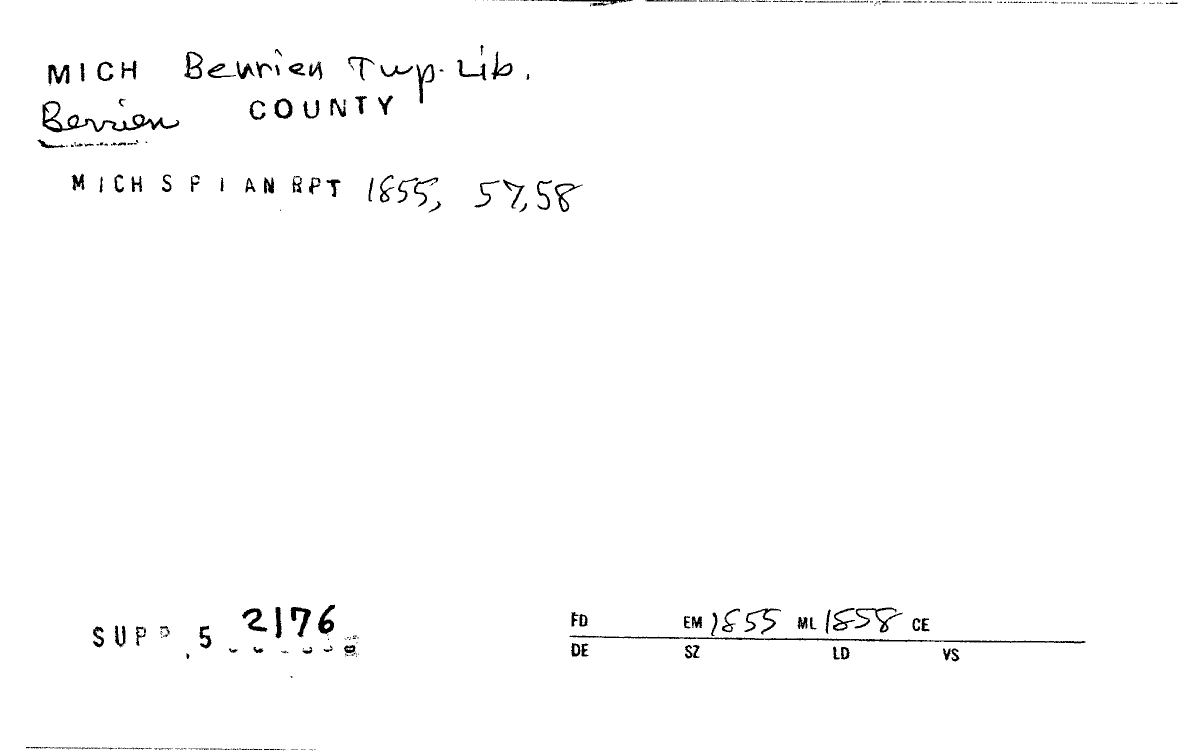 MICH Berrien Twp. Lib.
Berrien COUNTY
MICH S P I AN RPT 1855, 57, 58
SUPP 5 2176
FD EM 1855 ML 1858 CE
DE SZ LD VS